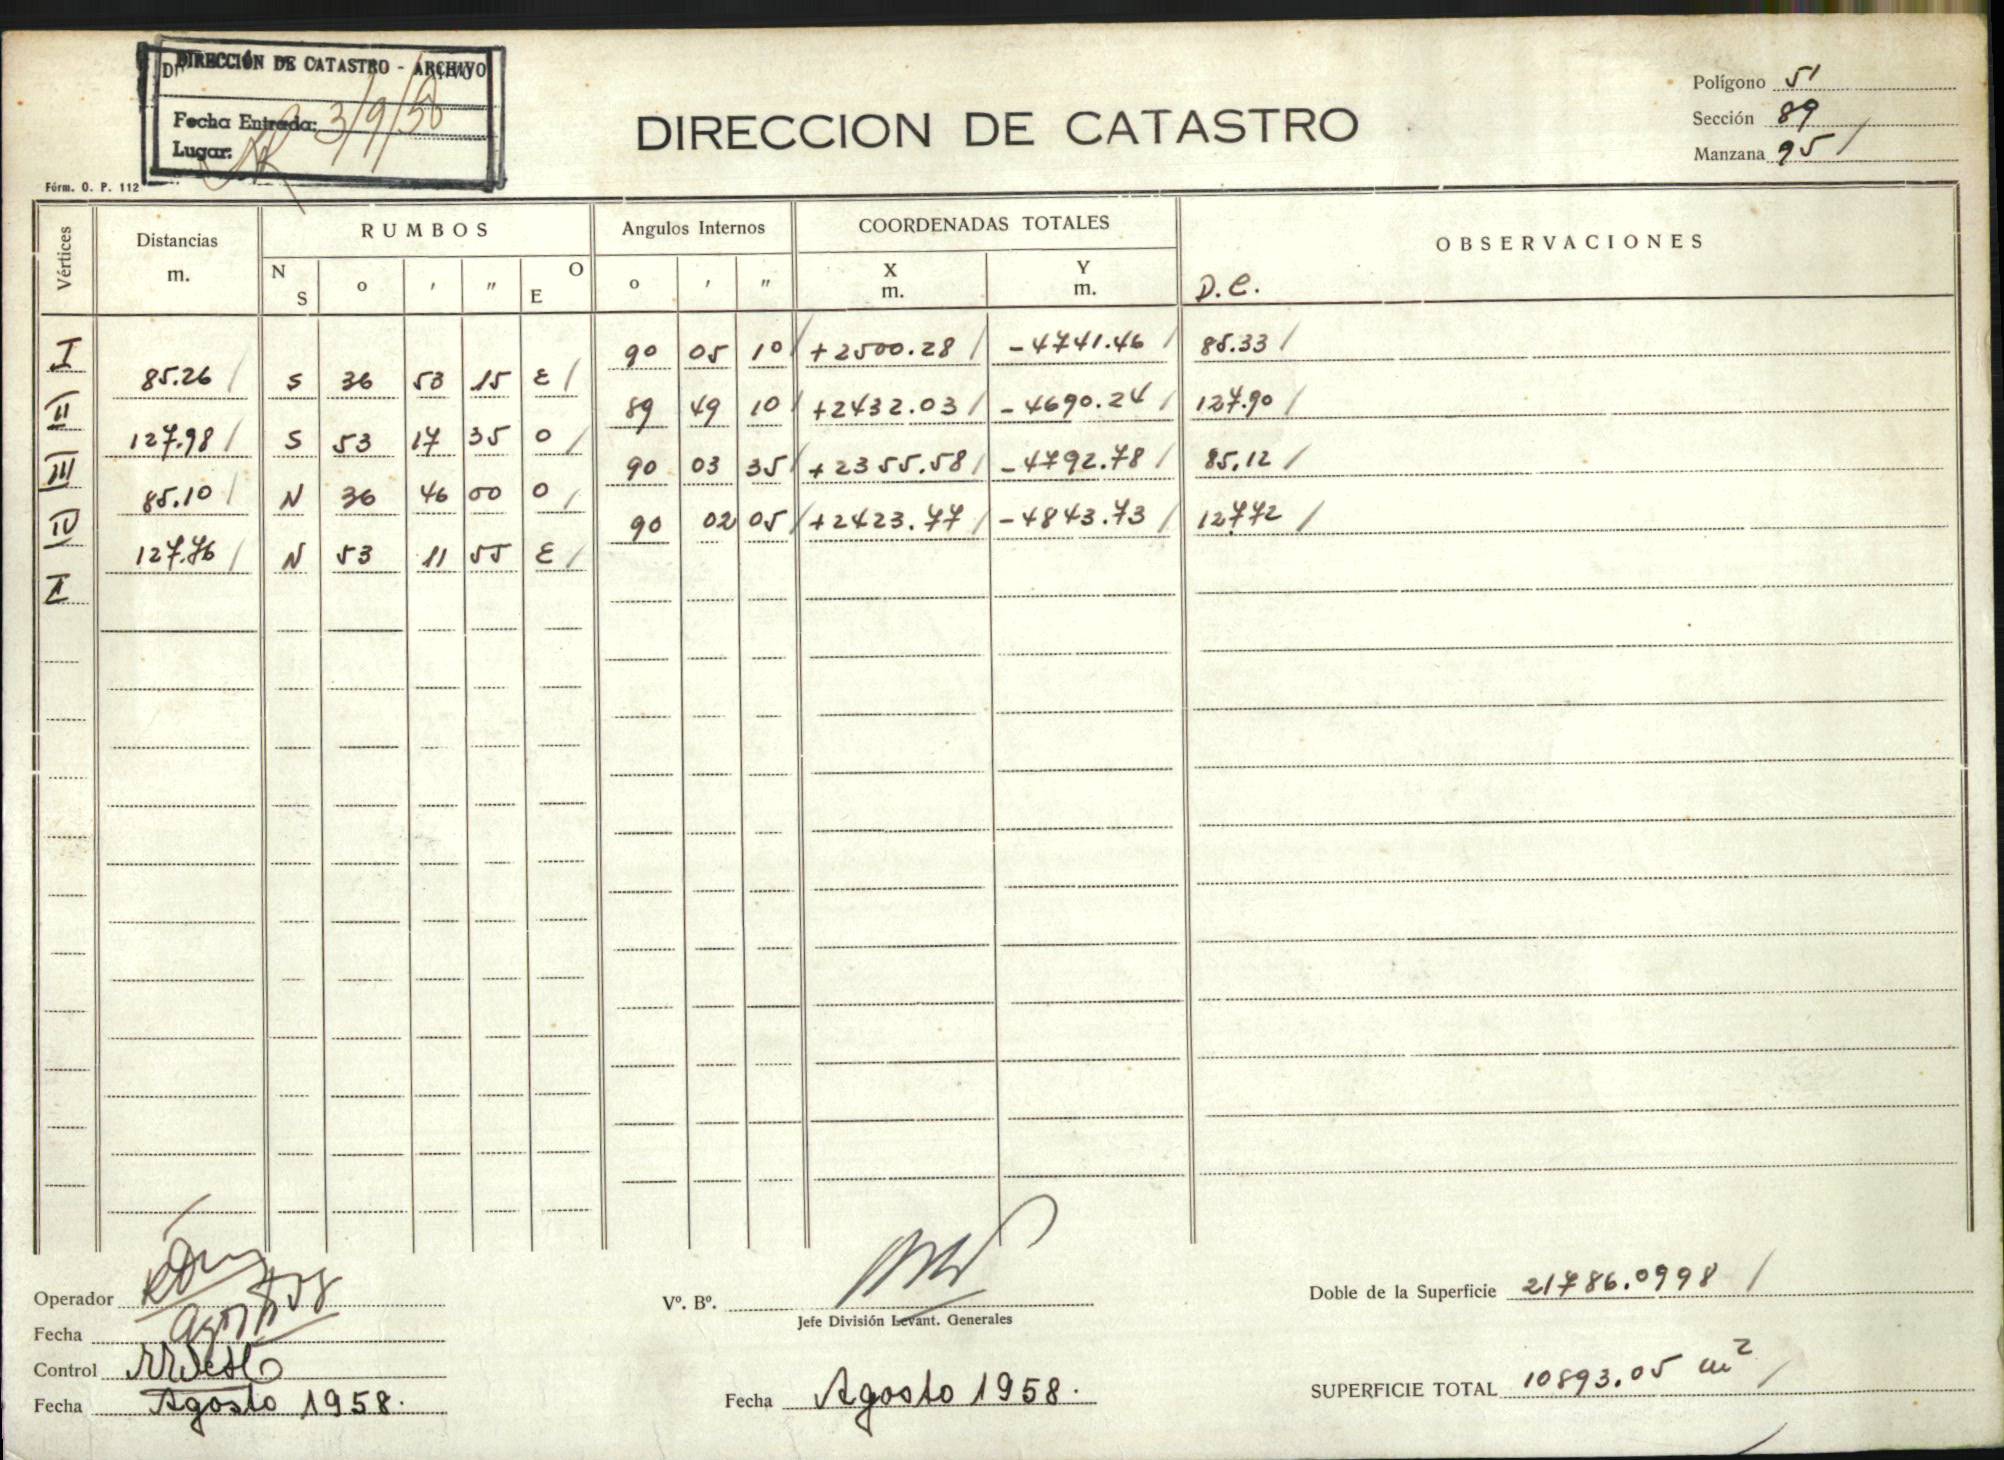 DIRECCIÓN DE CATASTRO - ARCHIVO
Fecha Entrada: 3/9/58
Lugar:
Fórm. O. P. 112
DIRECCION DE CATASTRO
Polígono 51
Sección 89
Manzana 95 /
Vértices Distancias m. RUMBOS N S o ' " O E Angulos Internos o ' " COORDENADAS TOTALES X m. Y m. OBSERVACIONES
D.C.
I 90 05 10 / +2500.28 / -4741.46 / 85.33 /
85.26 / S 36 53 15 E /
II 89 49 10 / +2432.03 / -4690.24 / 127.90 /
127.98 / S 53 17 35 O /
III 90 03 35 / +2355.58 / -4792.78 / 85.12 /
85.10 / N 36 46 00 O /
IV 90 02 05 / +2423.77 / -4843.73 / 127.72 /
127.76 / N 53 11 55 E /
I
Operador
Fecha
Control
Fecha Agosto 1958.
Vº. Bº.
Jefe División Levant. Generales
Fecha Agosto 1958.
Doble de la Superficie 21786.0998 /
SUPERFICIE TOTAL 10893.05 m² /